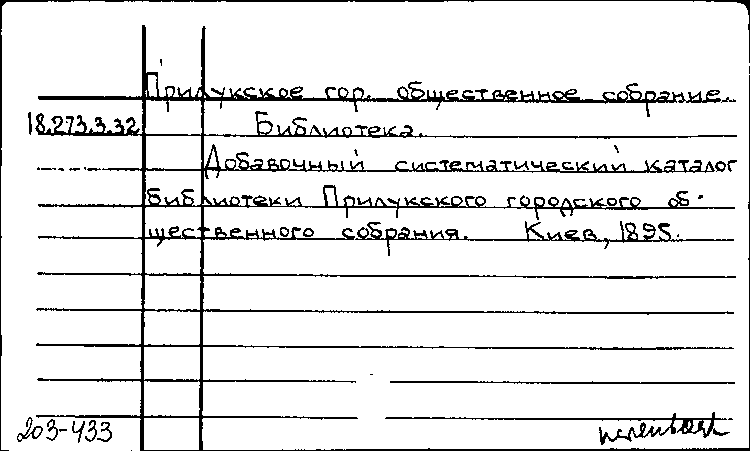 Прилукское гор. общественное собрание.
18.273.3.32 Библиотека.
Добавочный систематический каталог
библиотеки Прилукского городского об-
щественного собрания. Киев, 1895.
203-433